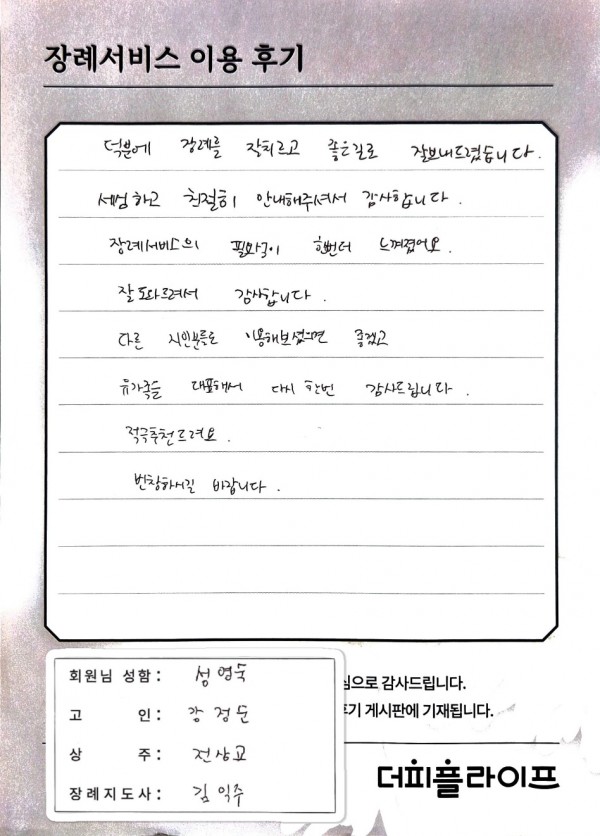 장례서비스 이용 후기
덕분에 장례를 잘치르고 좋은길로 잘보내드렸습니다.
세심하고 친절히 안내해주셔서 감사합니다.
장례서비스의 필요성이 한번더 느껴졌어요.
잘 도와드려서 감사합니다.
다른 지인분들도 이용해보셨으면 좋겠고
유가족을 대표해서 다시 한번 감사드립니다.
적극추천드려요.
번창하시길 바랍니다.
심으로 감사드립니다.
후기 게시판에 기재됩니다.
회원님 성함 : 성영숙
고 인 : 강정순
상 주 : 전상교
장례지도사 : 김익주
더피플라이프